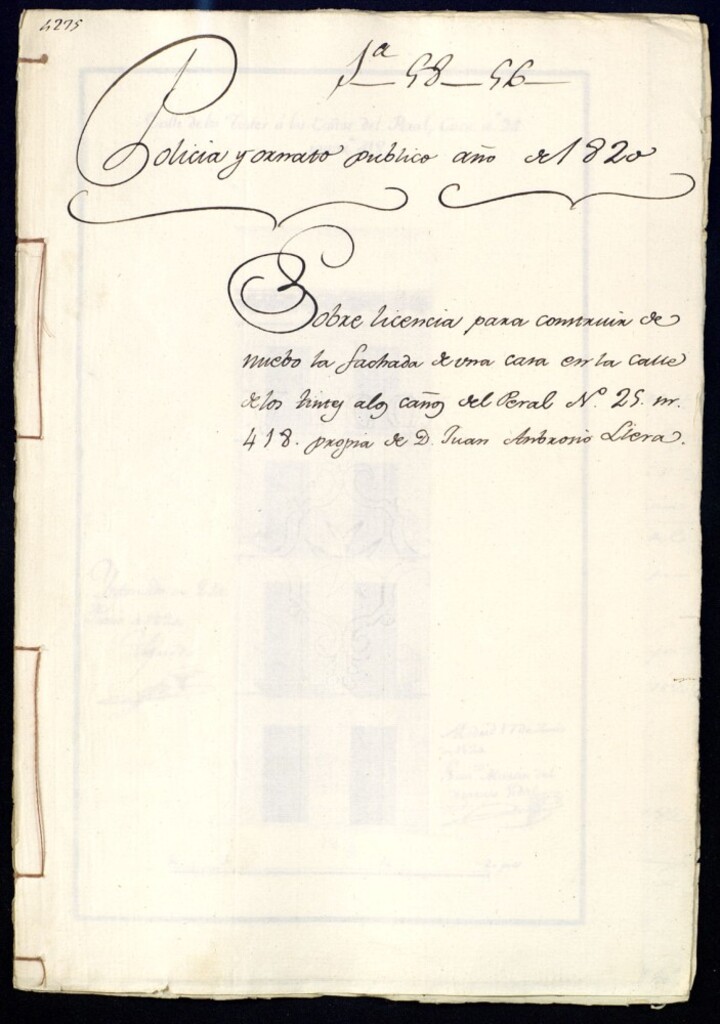 4275
1ª 58-56
Policia y ornato publico año de 1820
Sobre licencia para construir de
nuebo la fachada de una casa en la calle
de los tintes a los caños del Peral Nº. 25. m.
418. propia de D. Juan Ambrosio Llera.